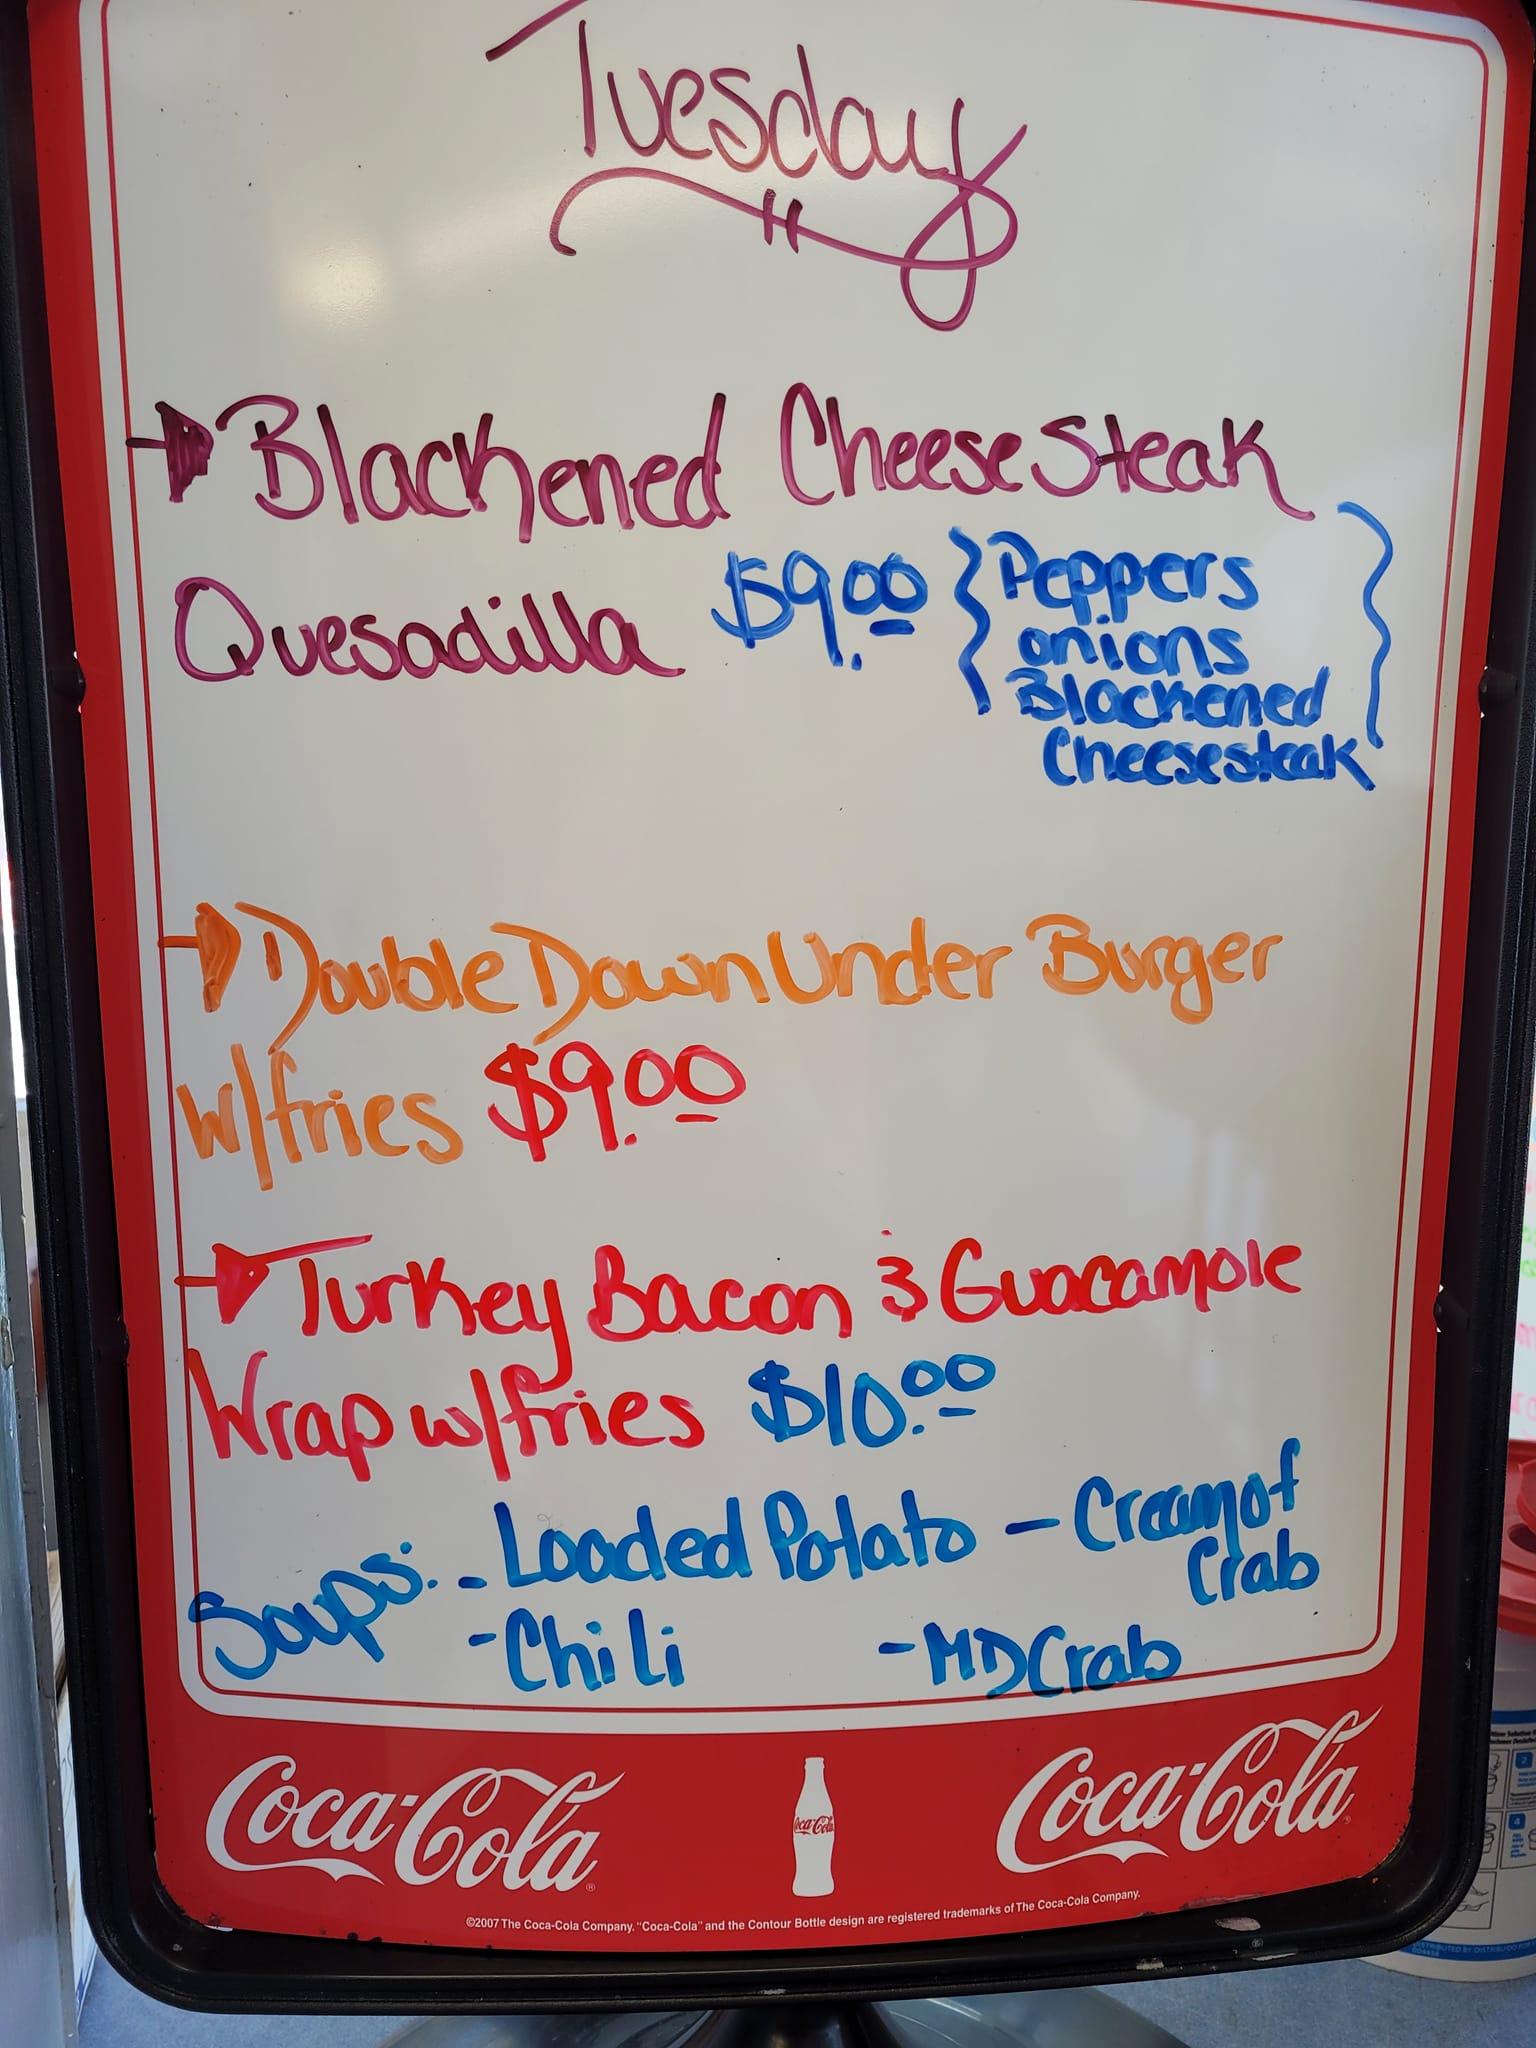 Tuesday
Blackened Cheese Steak
Quesadilla $9.00 { Peppers
onions
Blackened
Cheesesteak }
Double Down Under Burger
w/fries $9.00
Turkey Bacon & Guacamole
Wrap w/fries $10.00
Soups: - Loaded Potato - Cream of
Crab
- Chili - MD Crab
Coca-Cola® Coca-Cola Coca-Cola®
©2007 The Coca-Cola Company. "Coca-Cola" and the Contour Bottle design are registered trademarks of The Coca-Cola Company.